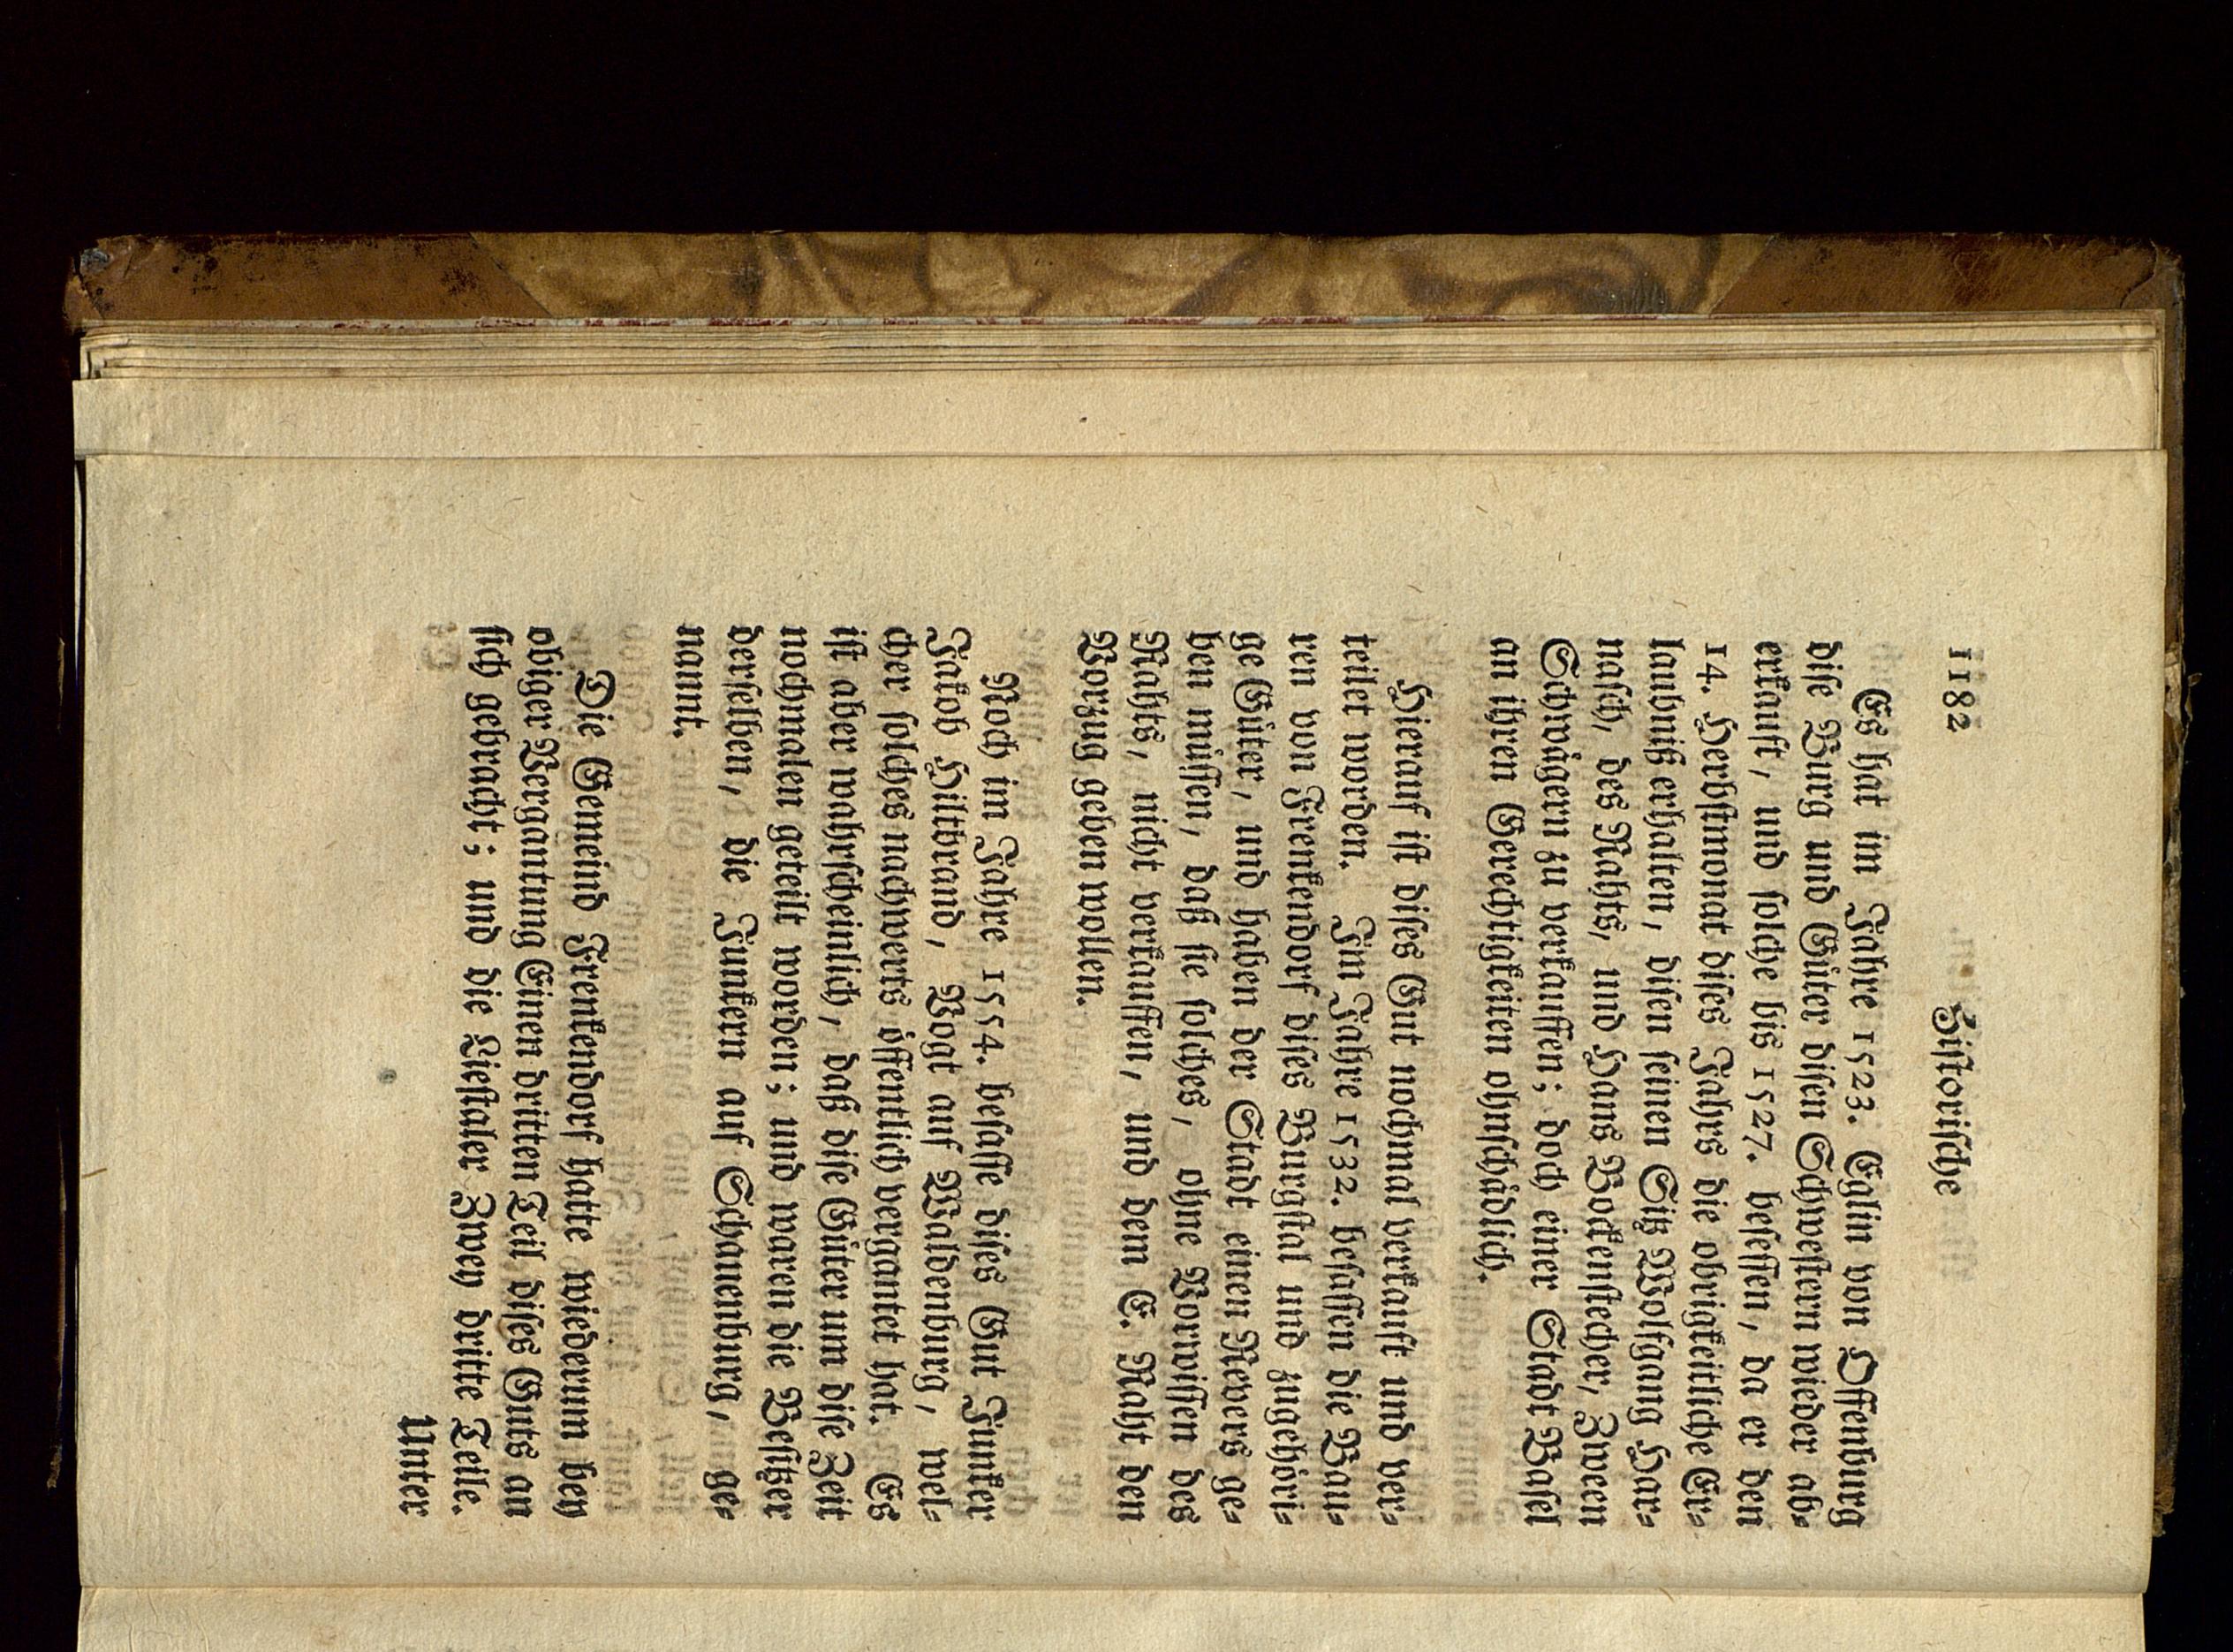 1182 Historische
Es hat im Jahre 1523. Eglin von Offenburg
dise Burg und Güter disen Schwestern wieder ab-
erkauft, und solche bis 1527. besessen, da er den
14. Herbstmonat dises Jahrs die obrigkeitliche Er-
laubniß erhalten, disen seinen Sitz Wolfgang Har-
nasch, des Rahts, und Hans Bockenstecher, Zween
Schwägern zu verkauffen; doch einer Stadt Basel
an ihren Gerechtigkeiten ohnschädlich.
Hierauf ist dises Gut nochmal verkauft und ver-
teilet worden. Im Jahre 1532. besassen die Bau-
ren von Frenkendorf dises Burgstal und zugehöri-
ge Güter, und haben der Stadt einen Revers ge-
ben müssen, daß sie solches, ohne Vorwissen des
Rahts, nicht verkauffen, und dem E. Raht den
Vorzug geben wollen.
Noch im Jahre 1554. besasse dises Gut Junker
Jakob Hiltbrand, Vogt auf Waldenburg, wel-
cher solches nachwerts öffentlich vergantet hat. Es
ist aber wahrscheinlich, daß dise Güter um dise Zeit
nochmalen geteilt worden; und waren die Besitzer
derselben, die Junkern auf Schauenburg, ge-
nannt.
Die Gemeind Frenkendorf hatte wiederum bey
obiger Vergantung Einen dritten Teil dises Guts an
sich gebracht; und die Liestaler Zwey dritte Teile.
Unter